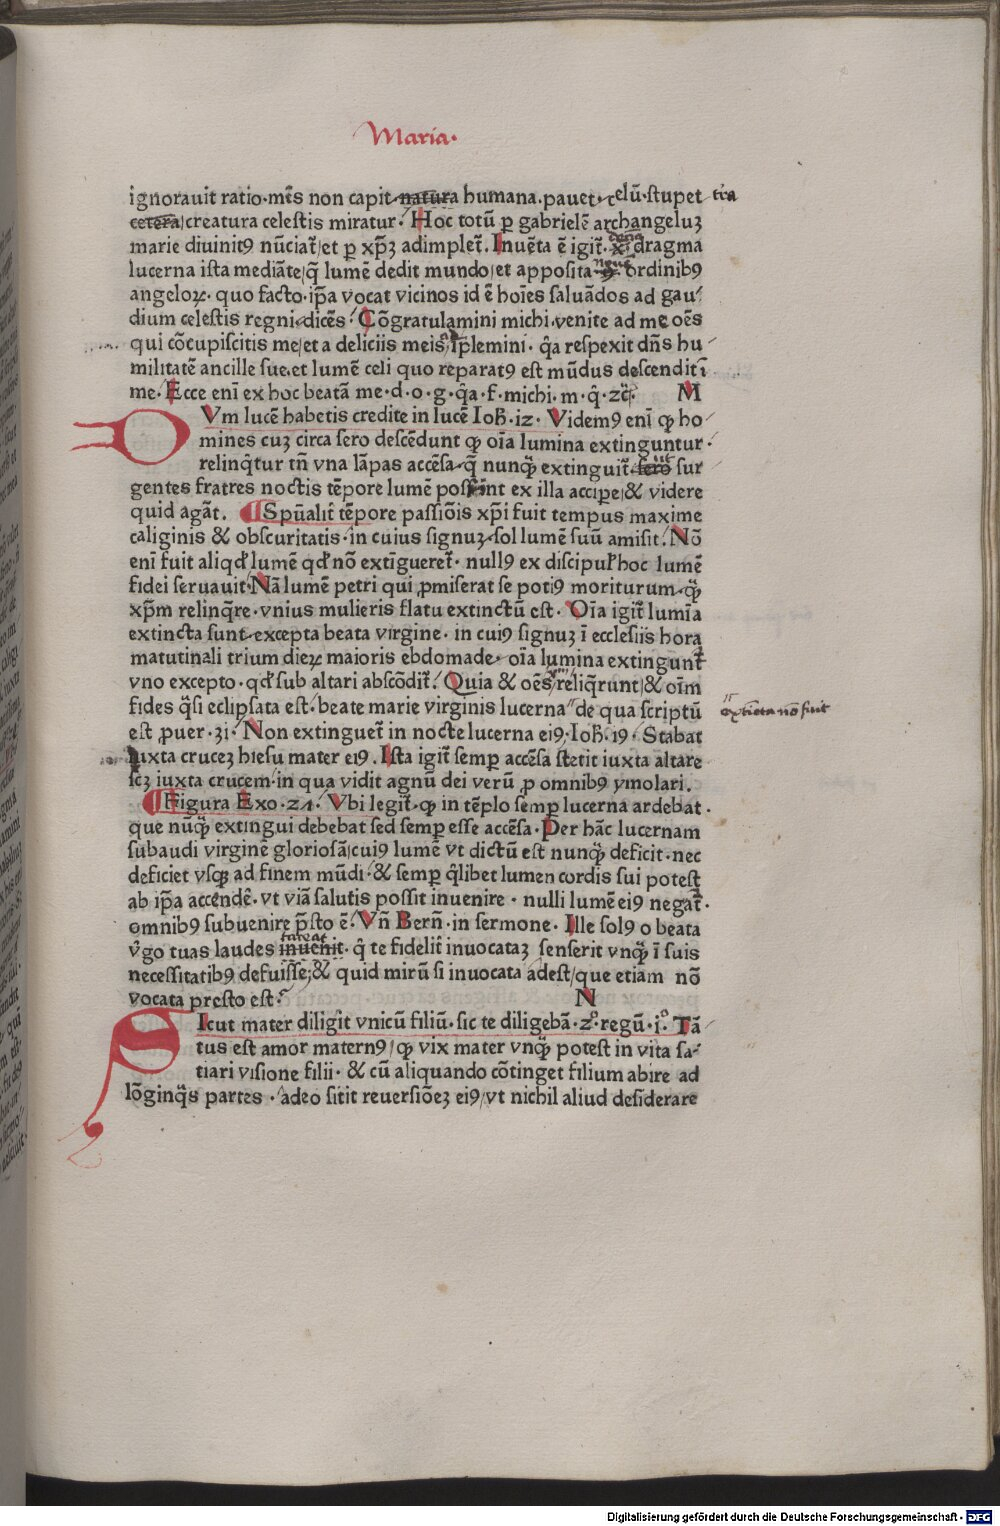 Maria.
ignorauit ratio·mēs non capit natura humana.pauet·celū·stupet tr̄a
cetera/creatura celestis miratur· Hoc totū ꝑ gabrielē archangeluꝫ
marie diuinitꝰ nūciat̄/et ꝑ xp̄ꝫ adimplet̄. Inuēta ē igit̄· dragma
lucerna ista mediāte/q̄ lumē dedit mundo/et apposita ordinibꝰ
angeloꝝ· quo facto·ip̄a vocat vicinos id ē hoīes saluādos ad gau⸗
dium celestis regni·dicēs· Cōgratulamini michi·venite ad me oēs
qui cōcupiscitis me/et a deliciis meis īplemini· q̄a respexit dn̄s hu⸗
militatē ancille sue.et lumē celi quo reparatꝰ est mūdus descendit ī
me· Ecce enī ex hoc beatā me·d·o·g·q̄a·f·michi·m·q̄·zc̄·        M
DVm lucē habetis credite in lucē Ioh̄·12· Videmꝰ enī ꝙ ho
mines cuꝫ circa sero descēdunt ꝙ oīa lumina extinguntur·
relinq̄tur tn̄ vna lāpas accēsa·q̄ nunq̄ extinguit̄· sero sur
gentes fratres noctis tēpore lumē possint ex illa accipe/& videre
quid agāt. ¶Spūalit̄ tēpore passiōis xp̄i fuit tempus maxime
caliginis & obscuritatis·in cuius signuꝫ·sol lumē suū amisit. Nō
enī fuit aliqd' lumē qd' nō extīgueret̄· nullꝰ ex discipul' hoc lumē
fidei seruauit·Nā lumē petri qui ꝓmiserat se potiꝰ moriturum·q̄
xp̄m relinq̄re·vnius mulieris flatu extinctū est· Oīa igit̄ lumīa
extincta sunt·excepta beata virgine· in cuiꝰ signuꝫ ī ecclesiis hora
matutinali trium dieꝝ maioris ebdomade· oīa lumina extingunt̄
vno excepto·qd' sub altari abscōdit̄· Quia & oēs reliq̄runt/& oīm
fides q̄si eclipsata est· beate marie virginis lucerna" de qua scriptū "extīcta nō fuit
est ꝓuer·31· Non extinguet̄ in nocte lucerna eiꝰ·Ioh̄·19· Stabat
iuxta cruceꝫ hiesu mater eiꝰ. Ista igit̄ semꝑ accēsa stetit iuxta altare
scꝫ iuxta crucem·in qua vidit agnū dei verū ꝓ omnibꝰ ymolari.
¶Figura Exo·24· Vbi legit̄·ꝙ in tēplo semꝑ lucerna ardebat·
que nūq̄ extingui debebat sed semꝑ esse accēsa· Per hāc lucernam
subaudi virginē gloriosā/cuiꝰ lumē vt dictū est nunq̄ deficit·nec
deficiet vsqꝫ ad finem mūdi·& semꝑ q̄libet lumen cordis sui potest
ab ip̄a accendē·vt viā salutis possit inuenire· nulli lumē eiꝰ negat̄·
omnibꝰ subuenire p̄sto ē· Vn̄ Bern̄·in sermone· Ille solꝰ o beata
v̄go tuas laudes inuenit taceat· q̄ te fidelit̄ inuocataꝫ senserit vnq̄ ī suis
necessitatibꝰ defuisse;& quid mirū si inuocata adest/que etiam nō
vocata presto est·        N
SIcut mater diligit vnicū filiū·sic te diligebā·2°·regū·i°· Tā⸗
tus est amor maternꝰ/ꝙ vix mater vnq̄ potest in vita sa⸗
tiari visione filii·& cū aliquando cōtinget filium abire ad
lōginq̄s partes·adeo sitit reuersiōeꝫ eiꝰ/vt nichil aliud desiderare
Digitalisierung gefördert durch die Deutsche Forschungsgemeinschaft - DFG